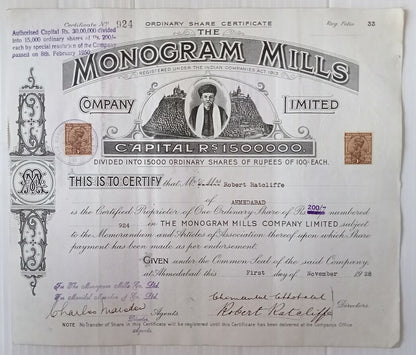 Certificate No 924 ORDINARY SHARE CERTIFICATE Reg. Folio 33
Authorised Capital Rs. 30,00,000 divided
into 15,000 ordinary shares of Rs. 200/-
each by special resolution of the Company
passed on 8th. February 1950.
THE
MONOGRAM MILLS
REGISTERED UNDER THE INDIAN COMPANIES ACT 1913
COMPANY LIMITED
CAPITAL RS 1500000.
DIVIDED INTO 15000 ORDINARY SHARES OF RUPEES OF 100 EACH.
M
THIS IS TO CERTIFY that Mr Robert Ratcliffe
of AHMEDABAD
is the Certified Proprietor of One Ordinary Share of Rs 200/- numbered
924 in THE MONOGRAM MILLS COMPANY LIMITED subject
to the Memorandum and Articles of Association thereof upon which Share
payment has been made as per endorsement.
GIVEN under the Common Seal of the said Company
at Ahmedabad this First day of November 1938
For The Monogram Mills Co. Ltd.
Charles Marsden
Agents
Director
Agents
Robert Ratcliffe
Directors
NOTE No Transfer of Share in this Certificate will be registered until this Certificate has been delivered at the Companys Office